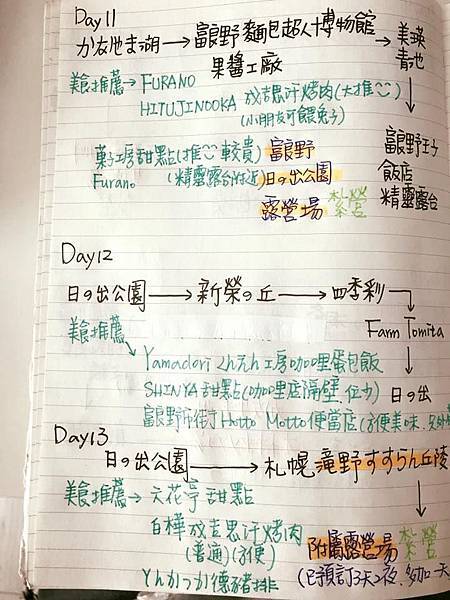 Day11
かなやま湖→富良野麵包超人博物館→美瑛
果醬工廠 青池
美食推薦→FURANO
HITUJINOOKA 成吉思汗烤肉(大推)
(小朋友可餵兔子)
富良野王子
飯店
精靈露台
菓子工房甜點(推 較貴) 富良野
Furano (精靈露台附近) 日の出公園
露營場 紮營
Day12
日の出公園→新榮の丘→四季彩
美食推薦 Farm Tomita
Yamadori くんえん工房咖哩蛋包飯
SHINYA 甜點(咖哩店隔壁
日の出
富良野市街 Hotto Motto 便當店(方便美味
Day13
日の出公園→札幌滝野すずらん丘陵
美食推薦→六花亭 甜點
白樺成吉思汗烤肉
(普通)(方便)
附屬露營場 紮營
とんかつか德豬排
(已預訂3天2夜.多加一天